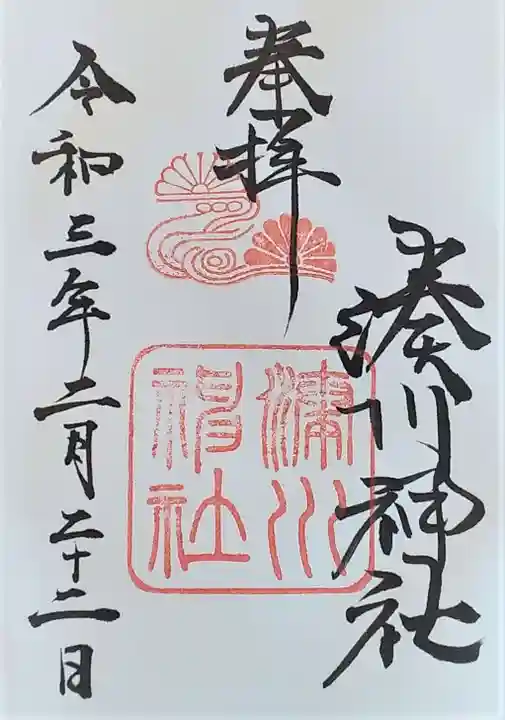 奉拝
湊川神社
湊川
神社
令和三年二月二十二日